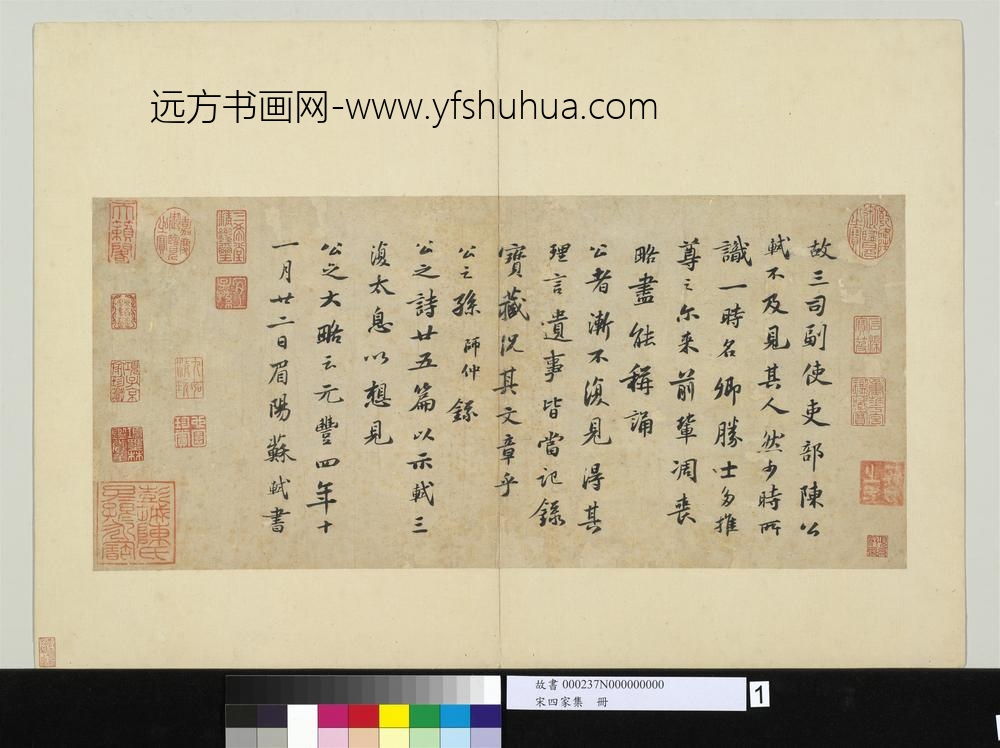 远方书画网-www.yfshuhua.com
故三司副使吏部陳公
軾不及見其人然少時所
識一時名卿勝士多推
尊之尓来前輩凋喪
略盡能稱誦
公者漸不復見得其
理言遺事皆當記録
寶藏況其文章乎
公之孫師仲録
公之詩廿五篇以示軾三
復太息以想見
公之大略云元豐四年十
一月廿二日眉陽蘇軾書
故書 000237N000000000
宋四家集 冊
1